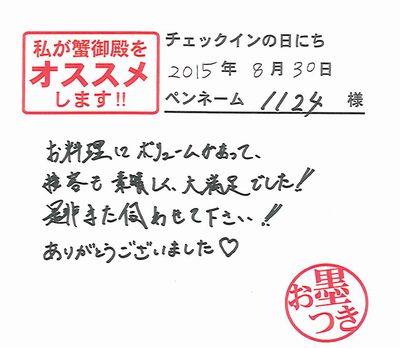 私が蟹御殿を
オススメ
します!!
チェックインの日にち
2015年 8月 30日
ペンネーム 1124 様
お料理にボリュームがあって、
接客も素晴しく、大満足でした!!
是非また伺わせて下さい!!
ありがとうございました♡
お墨つき